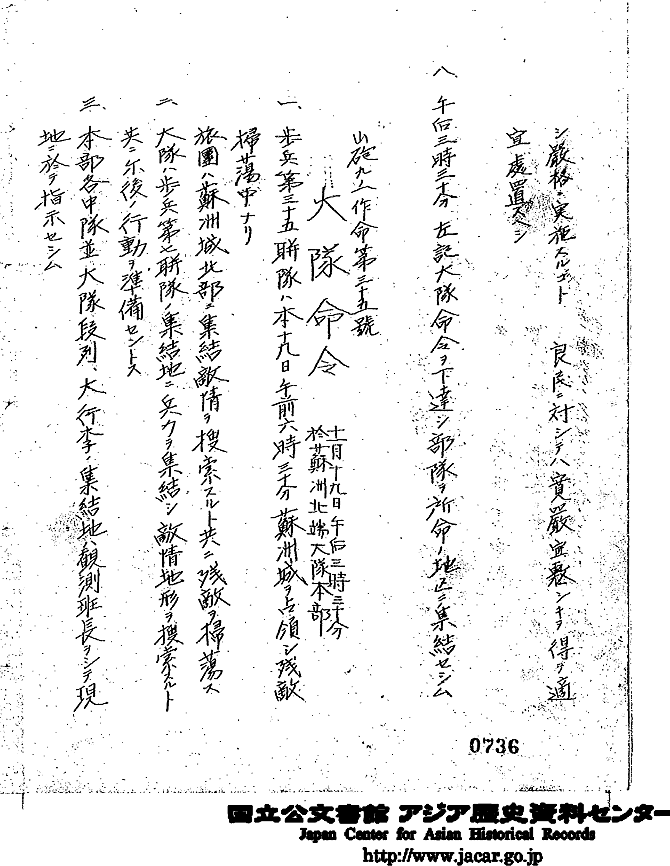 シ厳格ニ実施スルコト 良民ニ対シテハ寛厳宜敷シキヲ得テ適
宜處置スヘシ
八、午后三時三十分左記大隊命令ヲ下達シ部隊ヲ所命ノ地区ニ集結セシム
山砲九Ⅰ作命第三十五號
大隊命令
十一月十九日午后三時三十分
於蘇洲北端大隊本部
一、歩兵第三十五聯隊ハ本十九日午前六時三十分蘇洲城ヲ占領シ残敵
掃蕩中ナリ
旅團ハ蘇洲城北部ニ集結敵情ヲ搜索スルト共ニ残敵ヲ掃蕩ス
二、大隊ハ歩兵第七聯隊ノ集結地ニ兵力ヲ集結シ敵情地形ヲ搜索スルト
共ニ尓後ノ行動ヲ準備セントス
三、本部各中隊並大隊段列、大行李ノ集結地ハ観測班長ヲシテ現
地ニ於テ指示セシム
0736
国立公文書館 アジア歴史資料センター
Japan Center for Asian Historical Records
http://www.jacar.go.jp